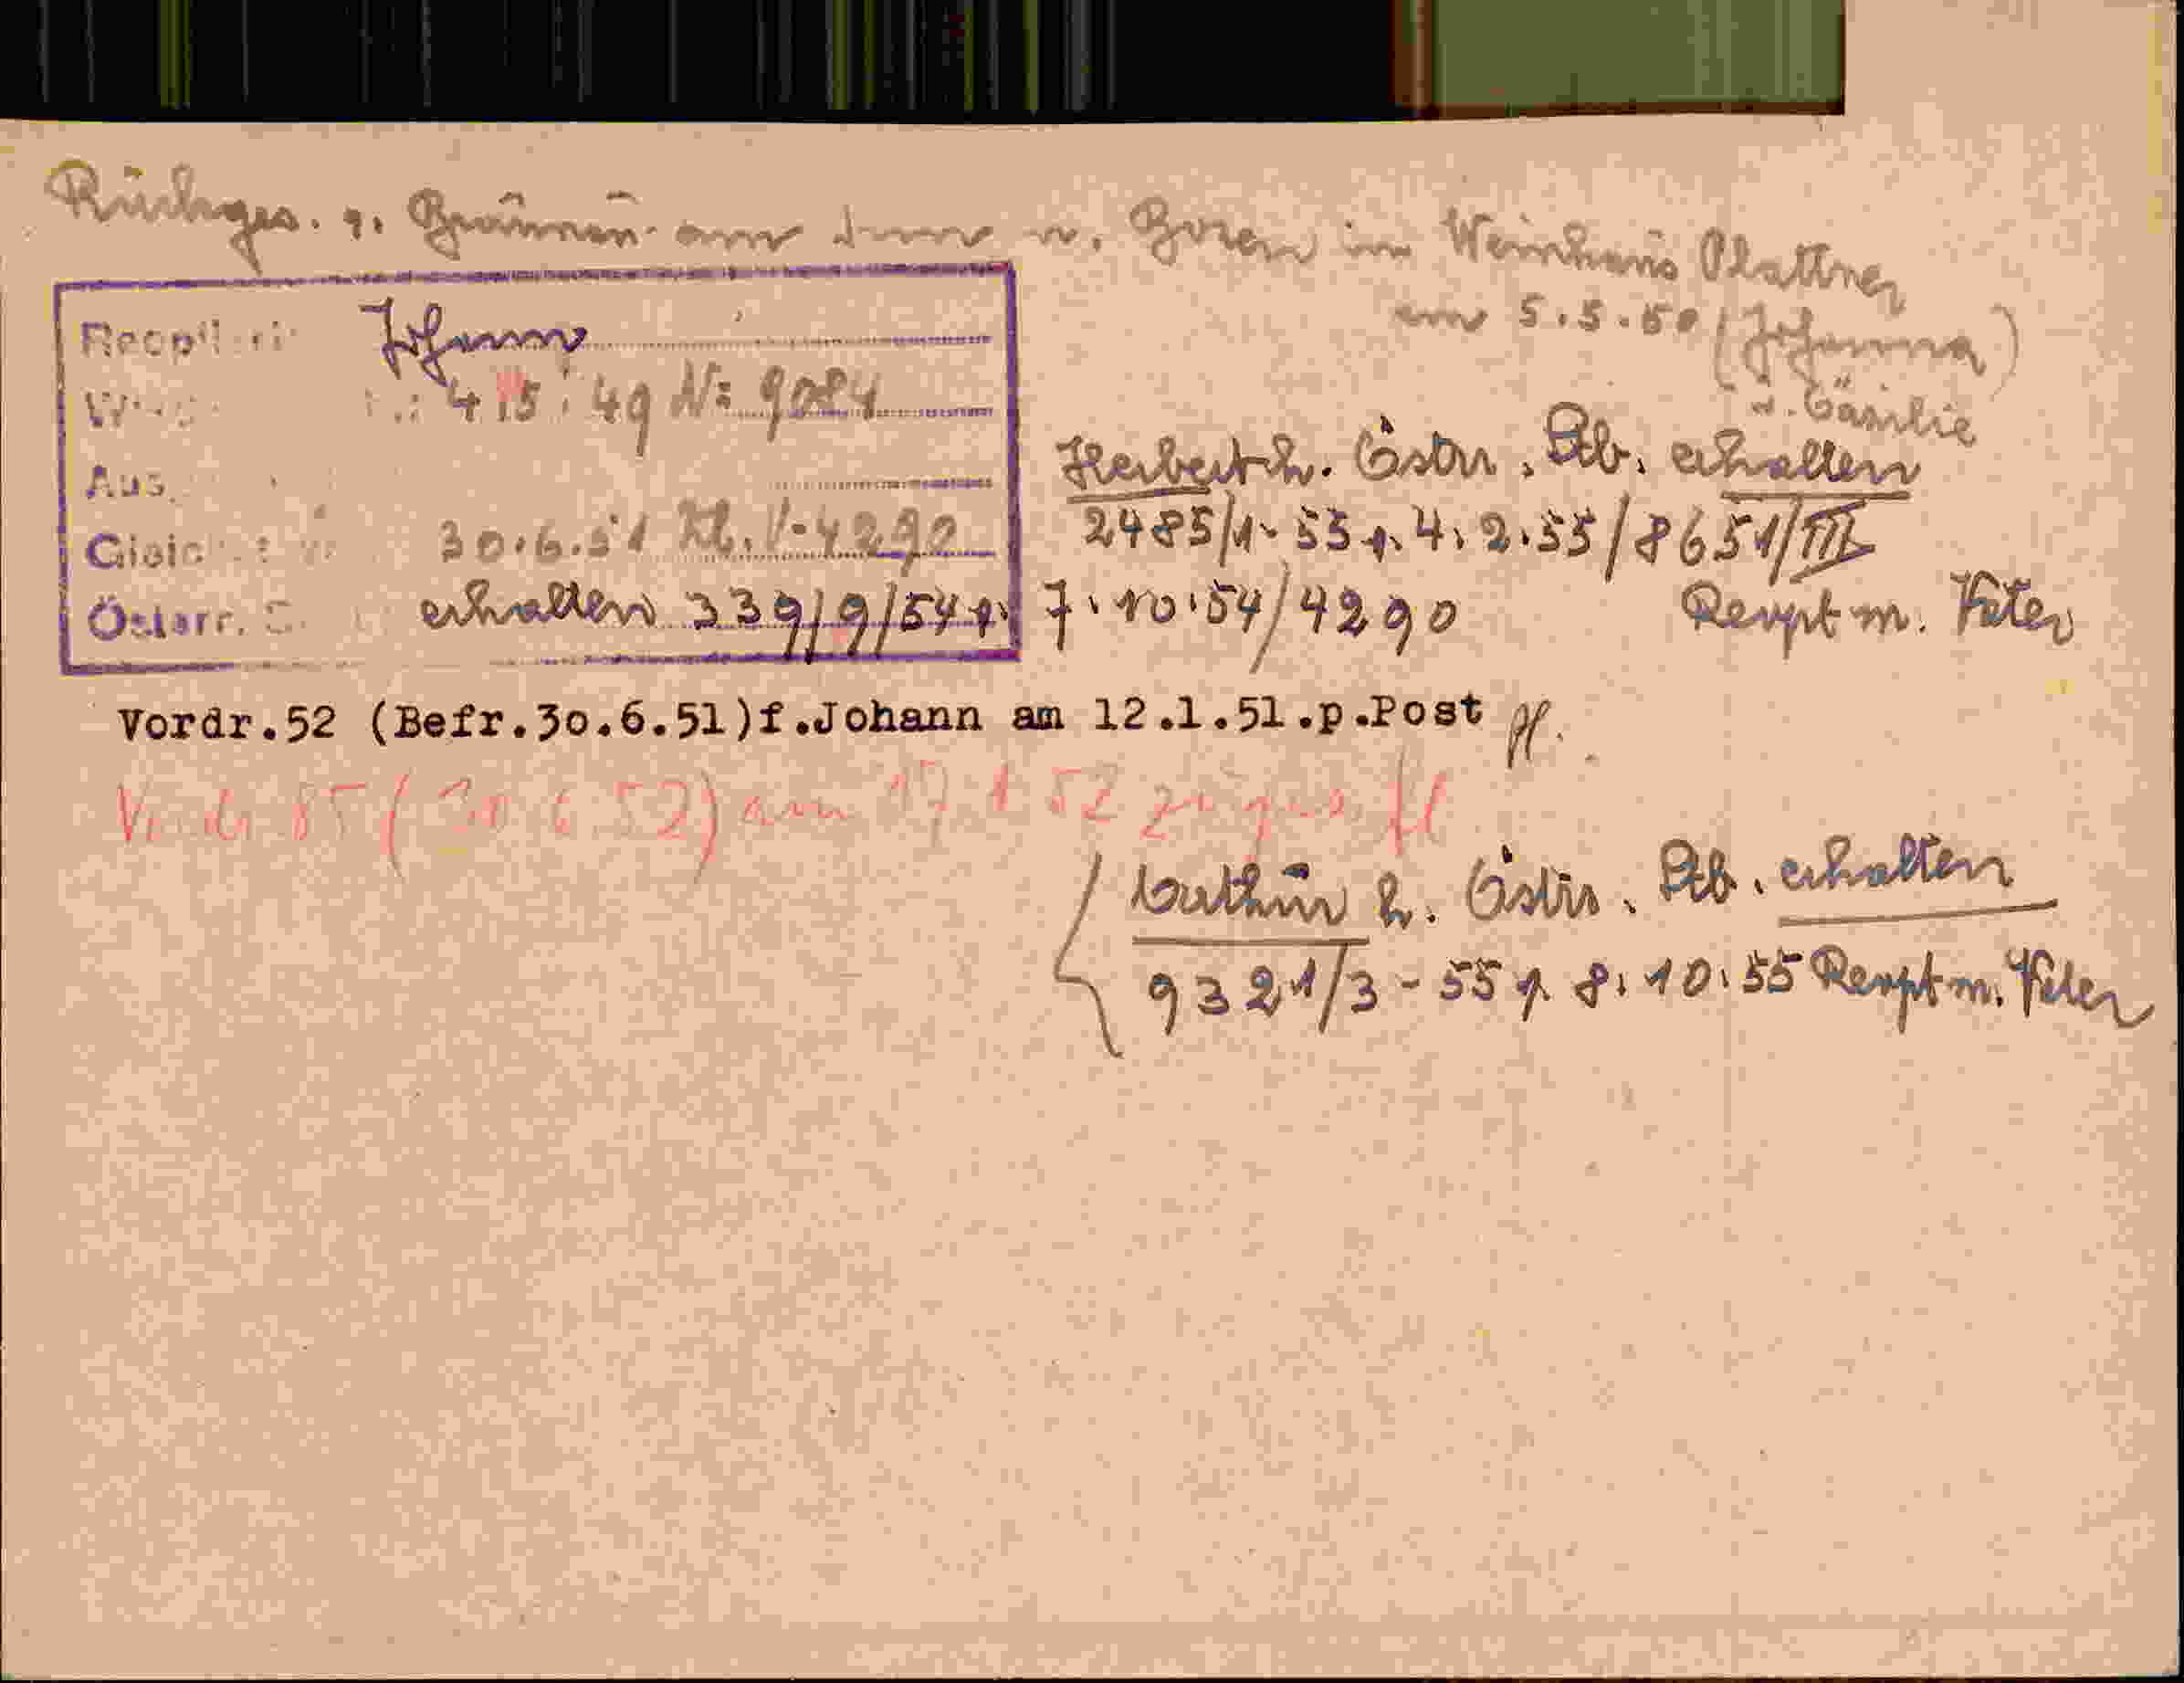 Rückges. v. Braunau am Inn n. Bozen im Weinhaus Plattner
am 5.5.50 (Johanna)
u. Cäsilie
Johann
4.5.49 N: 9084
Aus
30.6.51 Zl. V-4290
Österr. S. erhalten 339/9/54 v. 7.10.54/4290
Herbert h. Östr. Stb. erhalten
2485/1-55 v. 4.2.55/8651/III
Reopt m. Vater
Vordr.52 (Befr.30.6.51)f.Johann am 12.1.51.p.Post
85 (30.6.52) am 17.1.52
h. Östr. Stb. erhalten
9321/3-55 v. 8.10.55 Reopt m. Vater